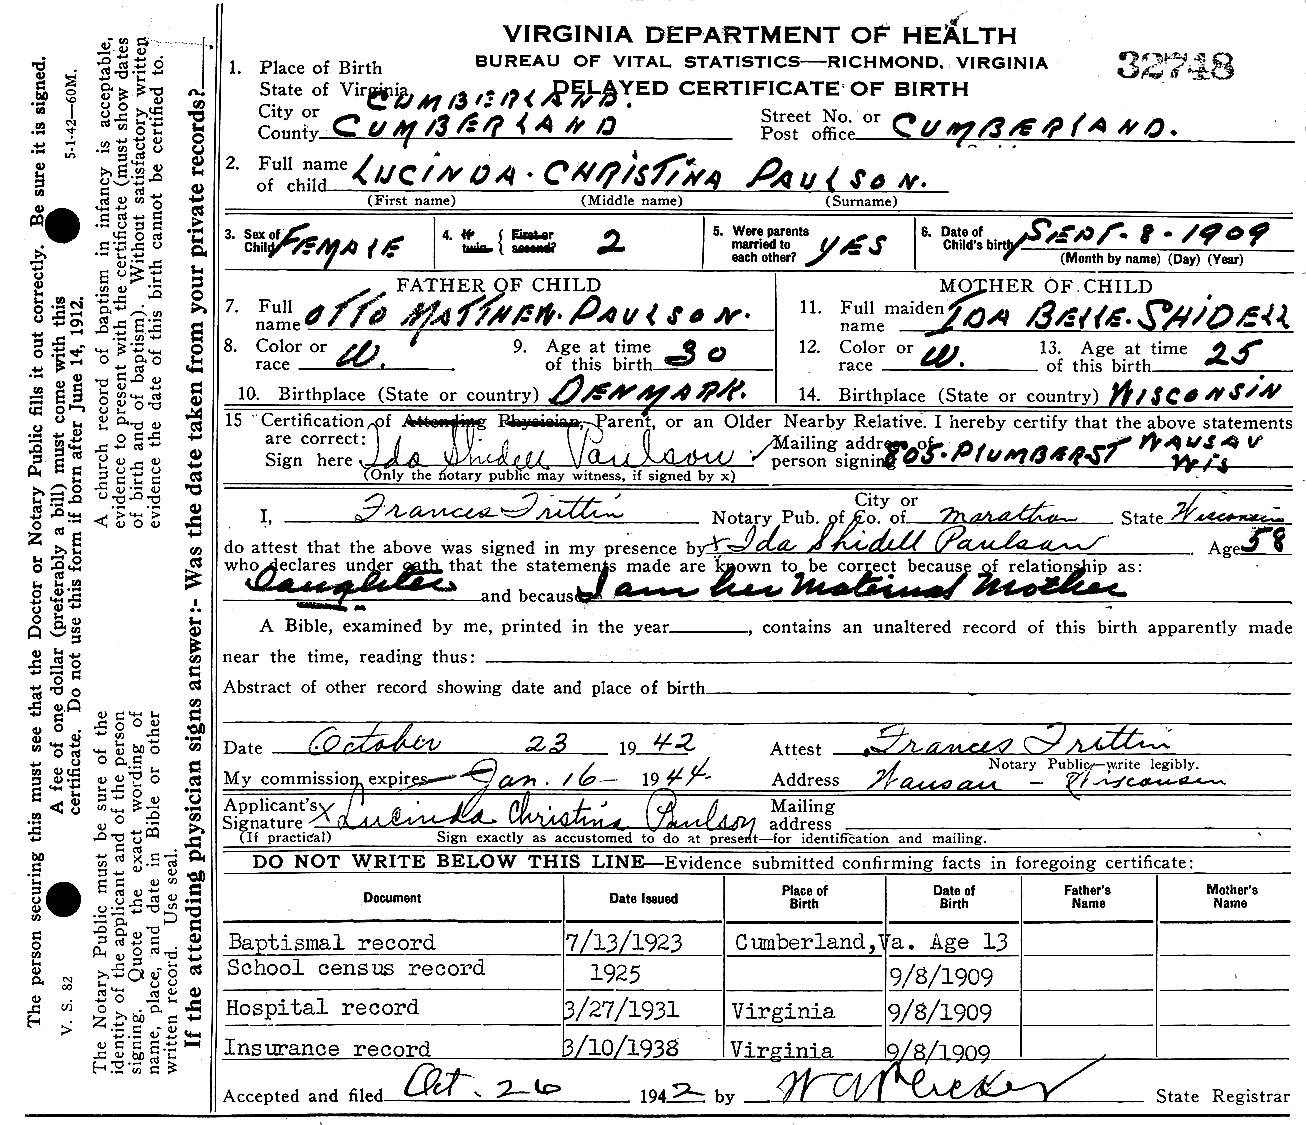 VIRGINIA DEPARTMENT OF HEALTH
BUREAU OF VITAL STATISTICS—RICHMOND, VIRGINIA
32748
DELAYED CERTIFICATE OF BIRTH
1. Place of Birth
State of Virginia CUMBERLAND.
City or County CUMBERLAND Street No. or Post office CUMBERLAND.
2. Full name of child LUCINDA. CHRISTINA PAULSON.
(First name) (Middle name) (Surname)
3. Sex of Child FEMALE 4. If twin { First or second? 2 5. Were parents married to each other? YES 6. Date of Child's birth SEPT. 8. 1909
(Month by name) (Day) (Year)
FATHER OF CHILD MOTHER OF CHILD
7. Full name OTTO MATTHEW. PAULSON. 11. Full maiden name IDA BELLE. SHIDELL
8. Color or race W. 9. Age at time of this birth 30 12. Color or race W. 13. Age at time of this birth 25
10. Birthplace (State or country) DENMARK. 14. Birthplace (State or country) WISCONSIN
15 Certification of Attending Physician, Parent, or an Older Nearby Relative. I hereby certify that the above statements
are correct:
Sign here Ida Shidell Paulson Mailing address of person signing 805. PLUMBER ST WAUSAU WIS
(Only the notary public may witness, if signed by x)
I, Frances Trittin Notary Pub. of City or Co. of Marathon State Wisconsin
do attest that the above was signed in my presence by x Ida Shidell Paulson Age 58
who declares under oath that the statements made are known to be correct because of relationship as:
Daughter and because I am her Maternal Mother
A Bible, examined by me, printed in the year , contains an unaltered record of this birth apparently made
near the time, reading thus:
Abstract of other record showing date and place of birth
Date October 23 1942 Attest Frances Trittin
Notary Public—write legibly.
My commission expires Jan. 16 — 1944. Address Wausau — Wisconsin
Applicant's Signature x Lucinda Christina Paulson Mailing address
(If practical) Sign exactly as accustomed to do at present—for identification and mailing.
DO NOT WRITE BELOW THIS LINE—Evidence submitted confirming facts in foregoing certificate:
Document Date Issued Place of Birth Date of Birth Father's Name Mother's Name
Baptismal record 7/13/1923 Cumberland, Va. Age 13
School census record 1925 9/8/1909
Hospital record 3/27/1931 Virginia 9/8/1909
Insurance record 3/10/1938 Virginia 9/8/1909
Accepted and filed Oct. 26 1942 by State Registrar
The person securing this must see that the Doctor or Notary Public fills it out correctly. Be sure it is signed.
V. S. 82 A fee of one dollar (preferably a bill) must come with this 5-1-42—60M.
certificate. Do not use this form if born after June 14, 1912.
The Notary Public must be sure of the
identity of the applicant and of the person
signing. Quote the exact wording of
name, place, and date in Bible or other
written record. Use seal.
A church record of baptism in infancy is acceptable,
evidence to present with the certificate (must show dates
of birth and of baptism). Without satisfactory written
evidence the date of this birth cannot be certified to.
If the attending physician signs answer:- Was the date taken from your private records?